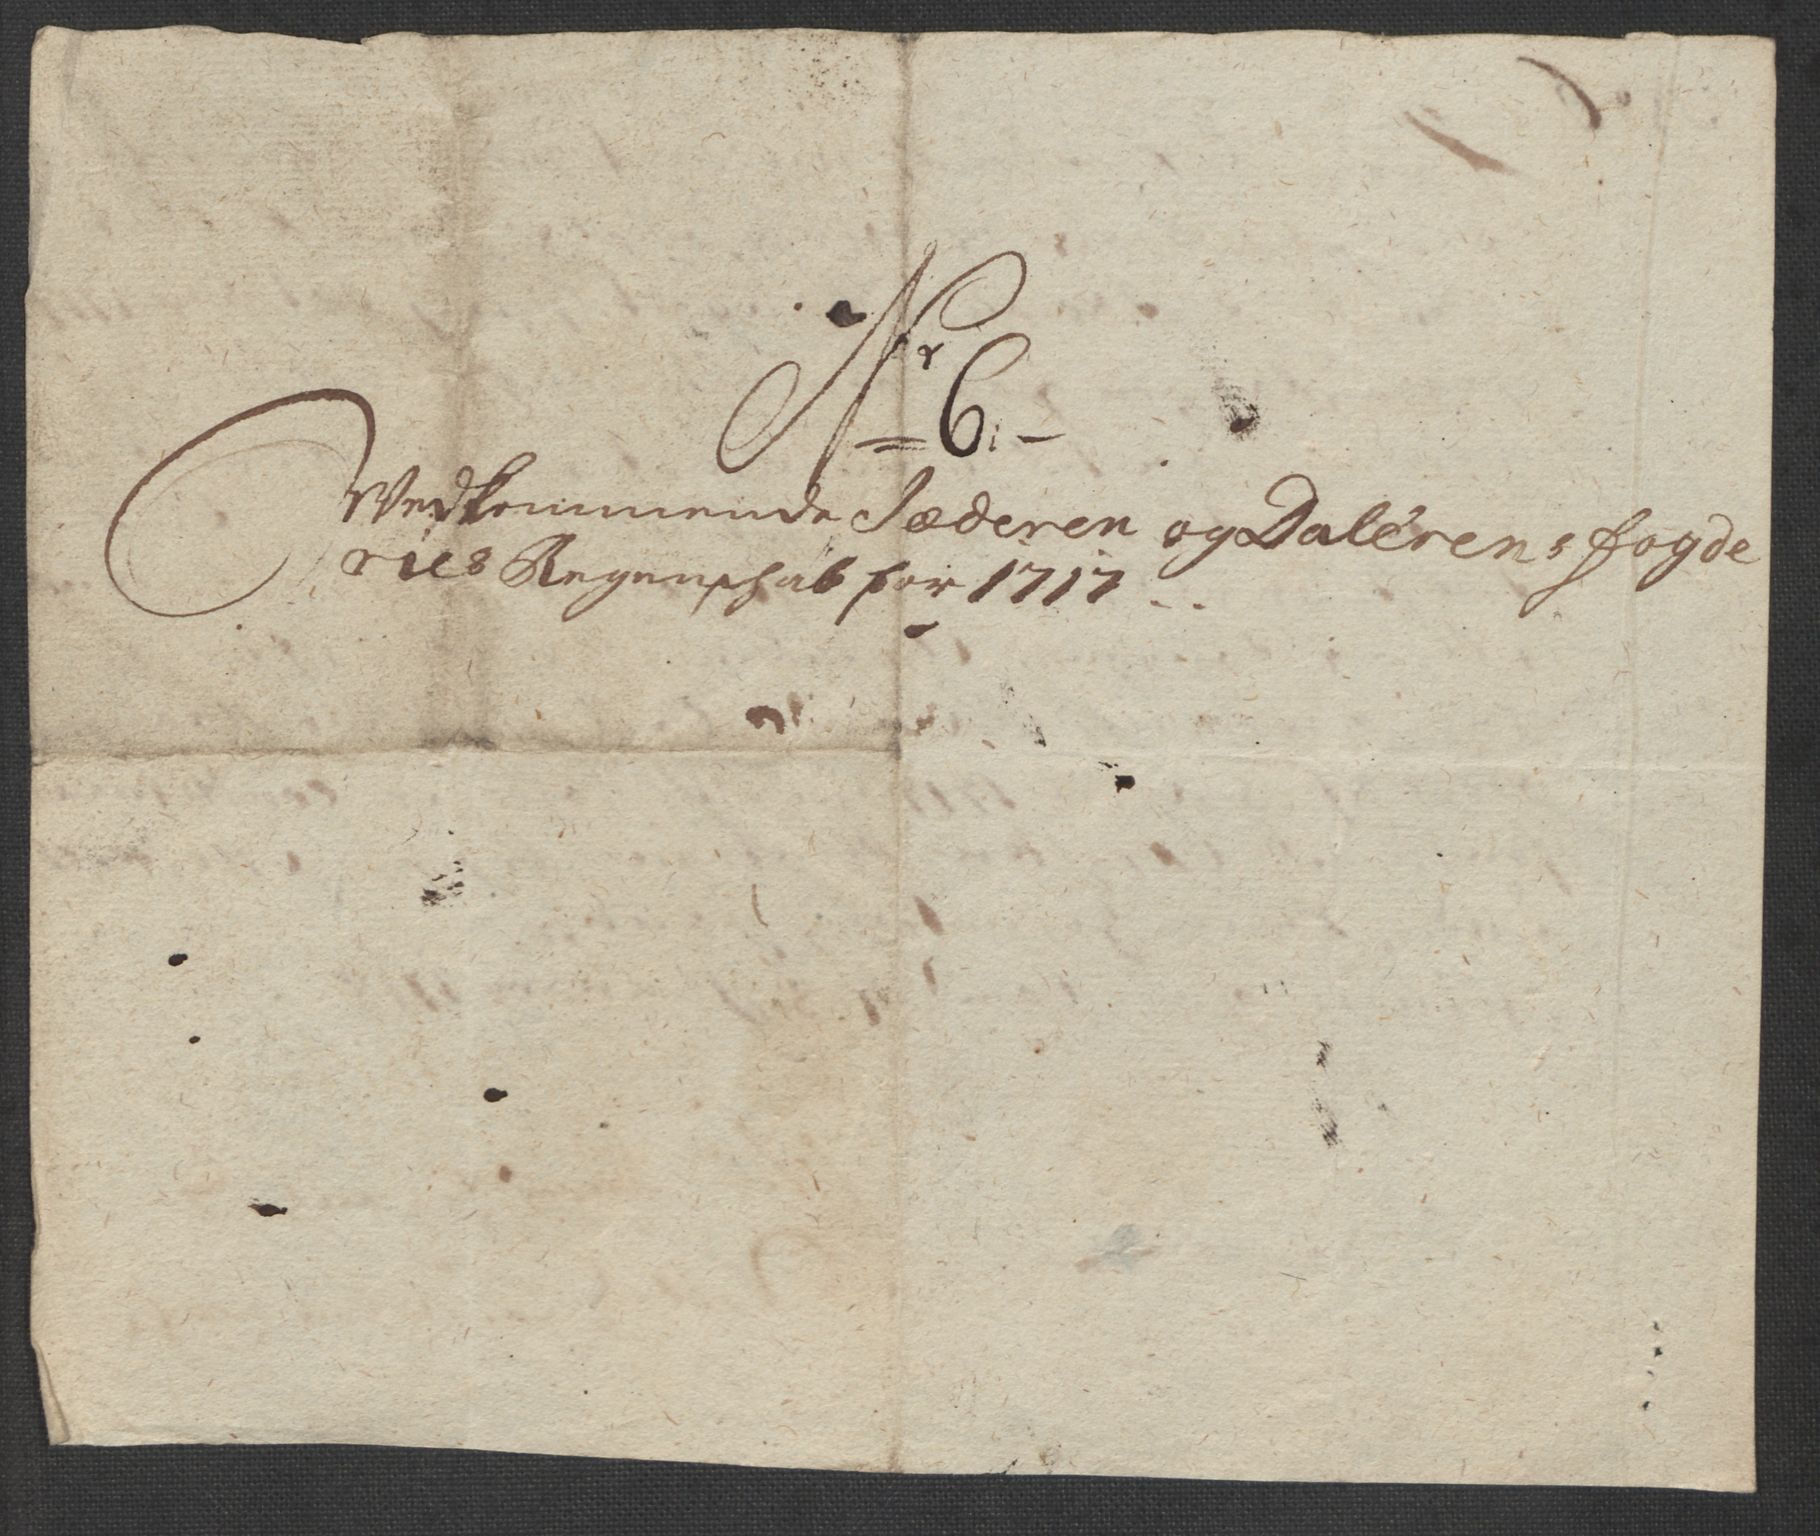 Nr 6:
Vedkommende Jæderen og Dalerens fogde
ries Regenschab for 1717